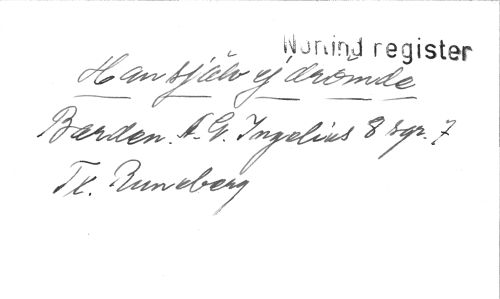 Nordind register
Han själv ej drömde
Barden. A.G. Ingelius 8 sgr. 7
Tx. Runeberg